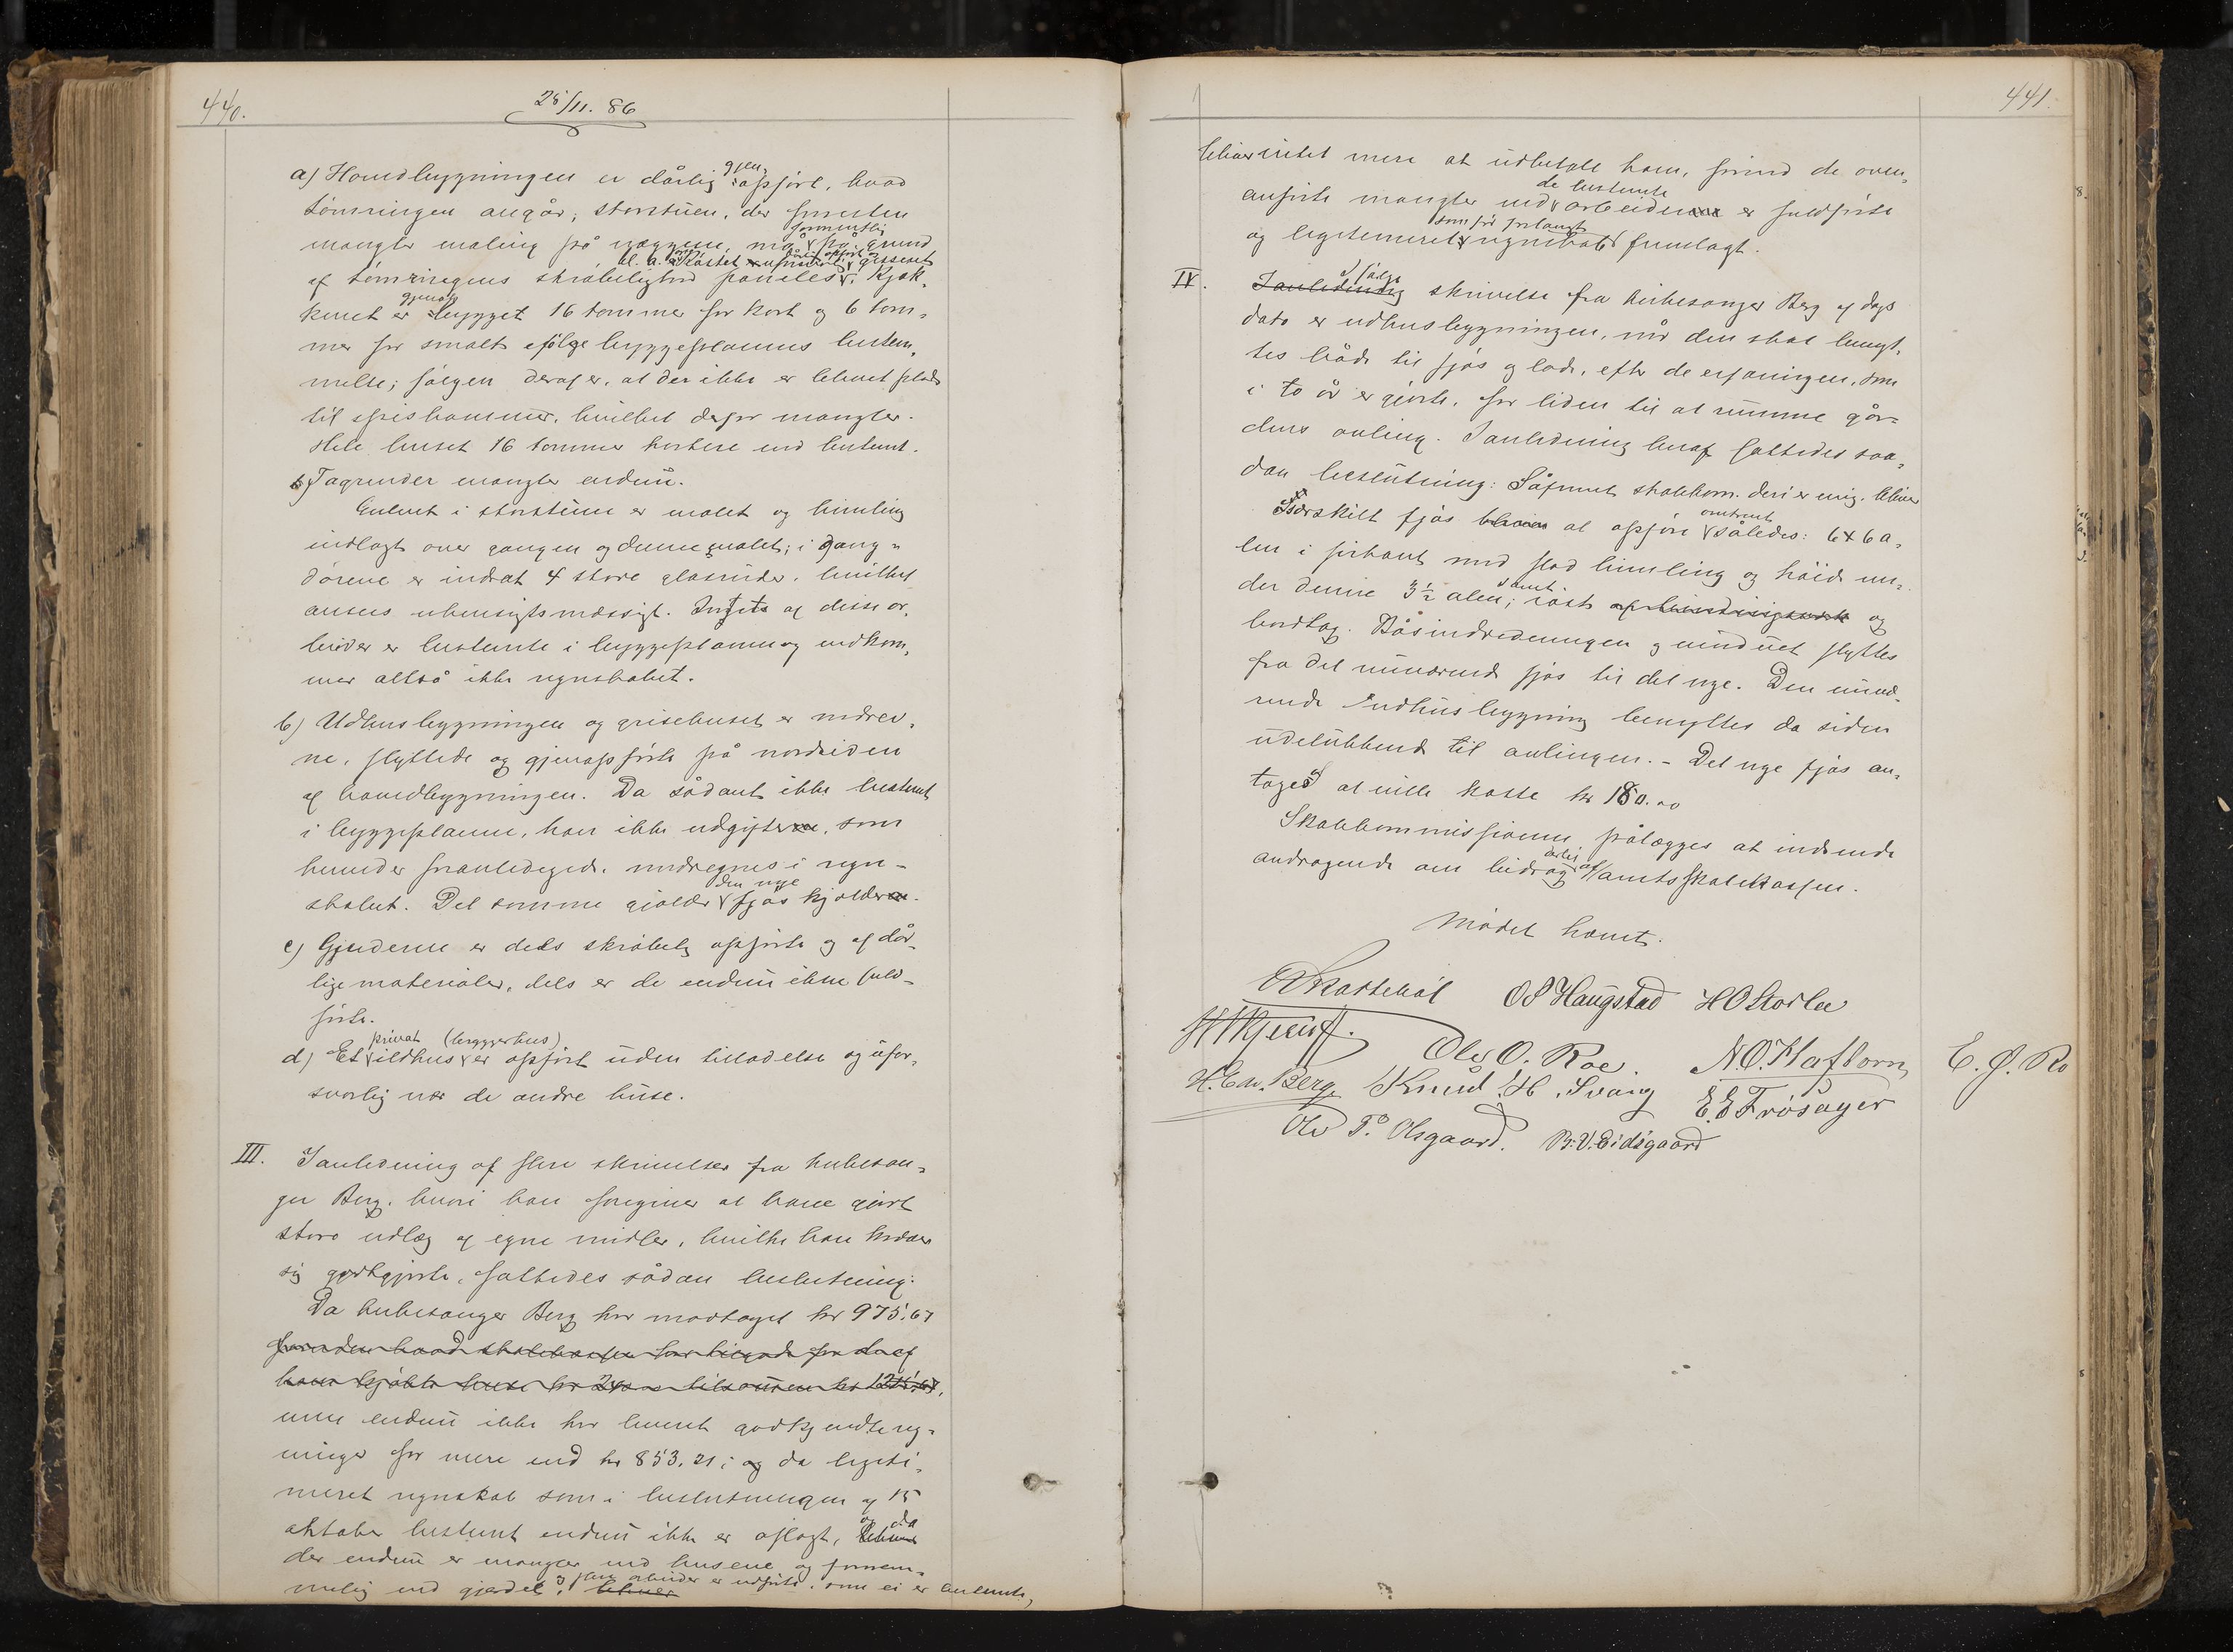 440.
25/11. 86
a) Hovedbygningen er dårlig gjenopført, hvad
tømringen angår; storstuen, der forresten
mangler maling på væggene, må formentlig på grund
af tømringens skrøbelighed paneles. Kjøk-
kenet er gjenopbygget 16 tommer for kort og 6 tom-
mer for smalt ifølge byggeplanens bestem-
melse; følgen deraf er, at der ikke er blevet plads
til spiskammer, hvilket derfor mangler.
Hele huset 16 tommer kortere end bestemt.
Tagrender mangler endnu.
Gulvet i storstuen er malet og himling
indlagt over gangen og denne malet; i gang-
dørene er indsat 4 store glasruder, hvilket
ansees uhensigtsmæssigt. Intet af disse ar-
beider er bestemte i byggeplanen og vedkom-
mer altså ikke regnskabet.
b) Udhusbygningen og grisehuset er nedrev-
ne, flyttede og gjenopførte på nordsiden
af hovedbygningen. Da sådant ikke bestemt
i byggeplanen, kan ikke udgifter, som
herved er foranledigede, medregnes i regn-
skabet. Det samme gjælder den nye fjøskjelder.
c) Gjerderne er dels skrøbelig opførte og af dår-
lige materialer, dels er de endnu ikke fuld-
førte.
d) Et privat ildhus (bryggerhus) er opført uden tilladelse og ufor-
svarlig nær de andre huse.
III. I anledning af flere skrivelser fra kirkesan-
ger Berg, hvori han foregiver at have gjort
store udlæg af egne midler, hvilke han kræver
sig godtgjorte, fattedes sådan beslutning:
Da kirkesanger Berg har modtaget kr 975.67
men endnu ikke har leveret godkjendte reg-
ninger for mere end kr 853.21; og da legiti-
meret regnskab som i beslutningen af 15
oktober bestemt endnu ikke er aflagt, og da
der endnu er mangler ved husene og fornem-
melig ved gjerdet, og flere arbeider er udførte, som ei er bestemte,
441.
bliver intet mere at udbetale ham, førend de oven-
anførte mangler ved de bestemte arbeider er fuldførte
og legitimeret regnskab som før forlangt fremlagt.
IV. Ifølge skrivelse fra kirkesanger Berg af dags
dato er udhusbygningen, når den skal benyt-
tes både til fjøs og lade, efter de erfaringer, som
i to år er gjorte, for liden til at rumme går-
dens avling. I anledning heraf fattedes så-
dan beslutning: Såfremt skolekom. deri er enig, bliver
særskilt fjøs at opføre omtrent således: 6 x 6 a-
len i firkant med flad himling og høide un-
der denne 3 1/2 alen; samt røste og
bordtag. Båsindredningen og vinduet flyttes
fra det nuværende fjøs til det nye. Den nuvæ-
rende udhusbygning benyttes da siden
udelukkende til avlingen. - Det nye fjøs an-
tages at ville koste kr 180.00
Skolekommissionen pålægges at indsende
andragende om bidrag dertil af amtsskolekassen.
Mødet hævet.
O S Haugstad H O Storlee
Ole O. Roe. N. O. Hafborn E. J. Ro
H. Edv. Berge Knud. H. Svang E. E Frøsager
Ole P. Olsgaard. B. V. Eidsgaard